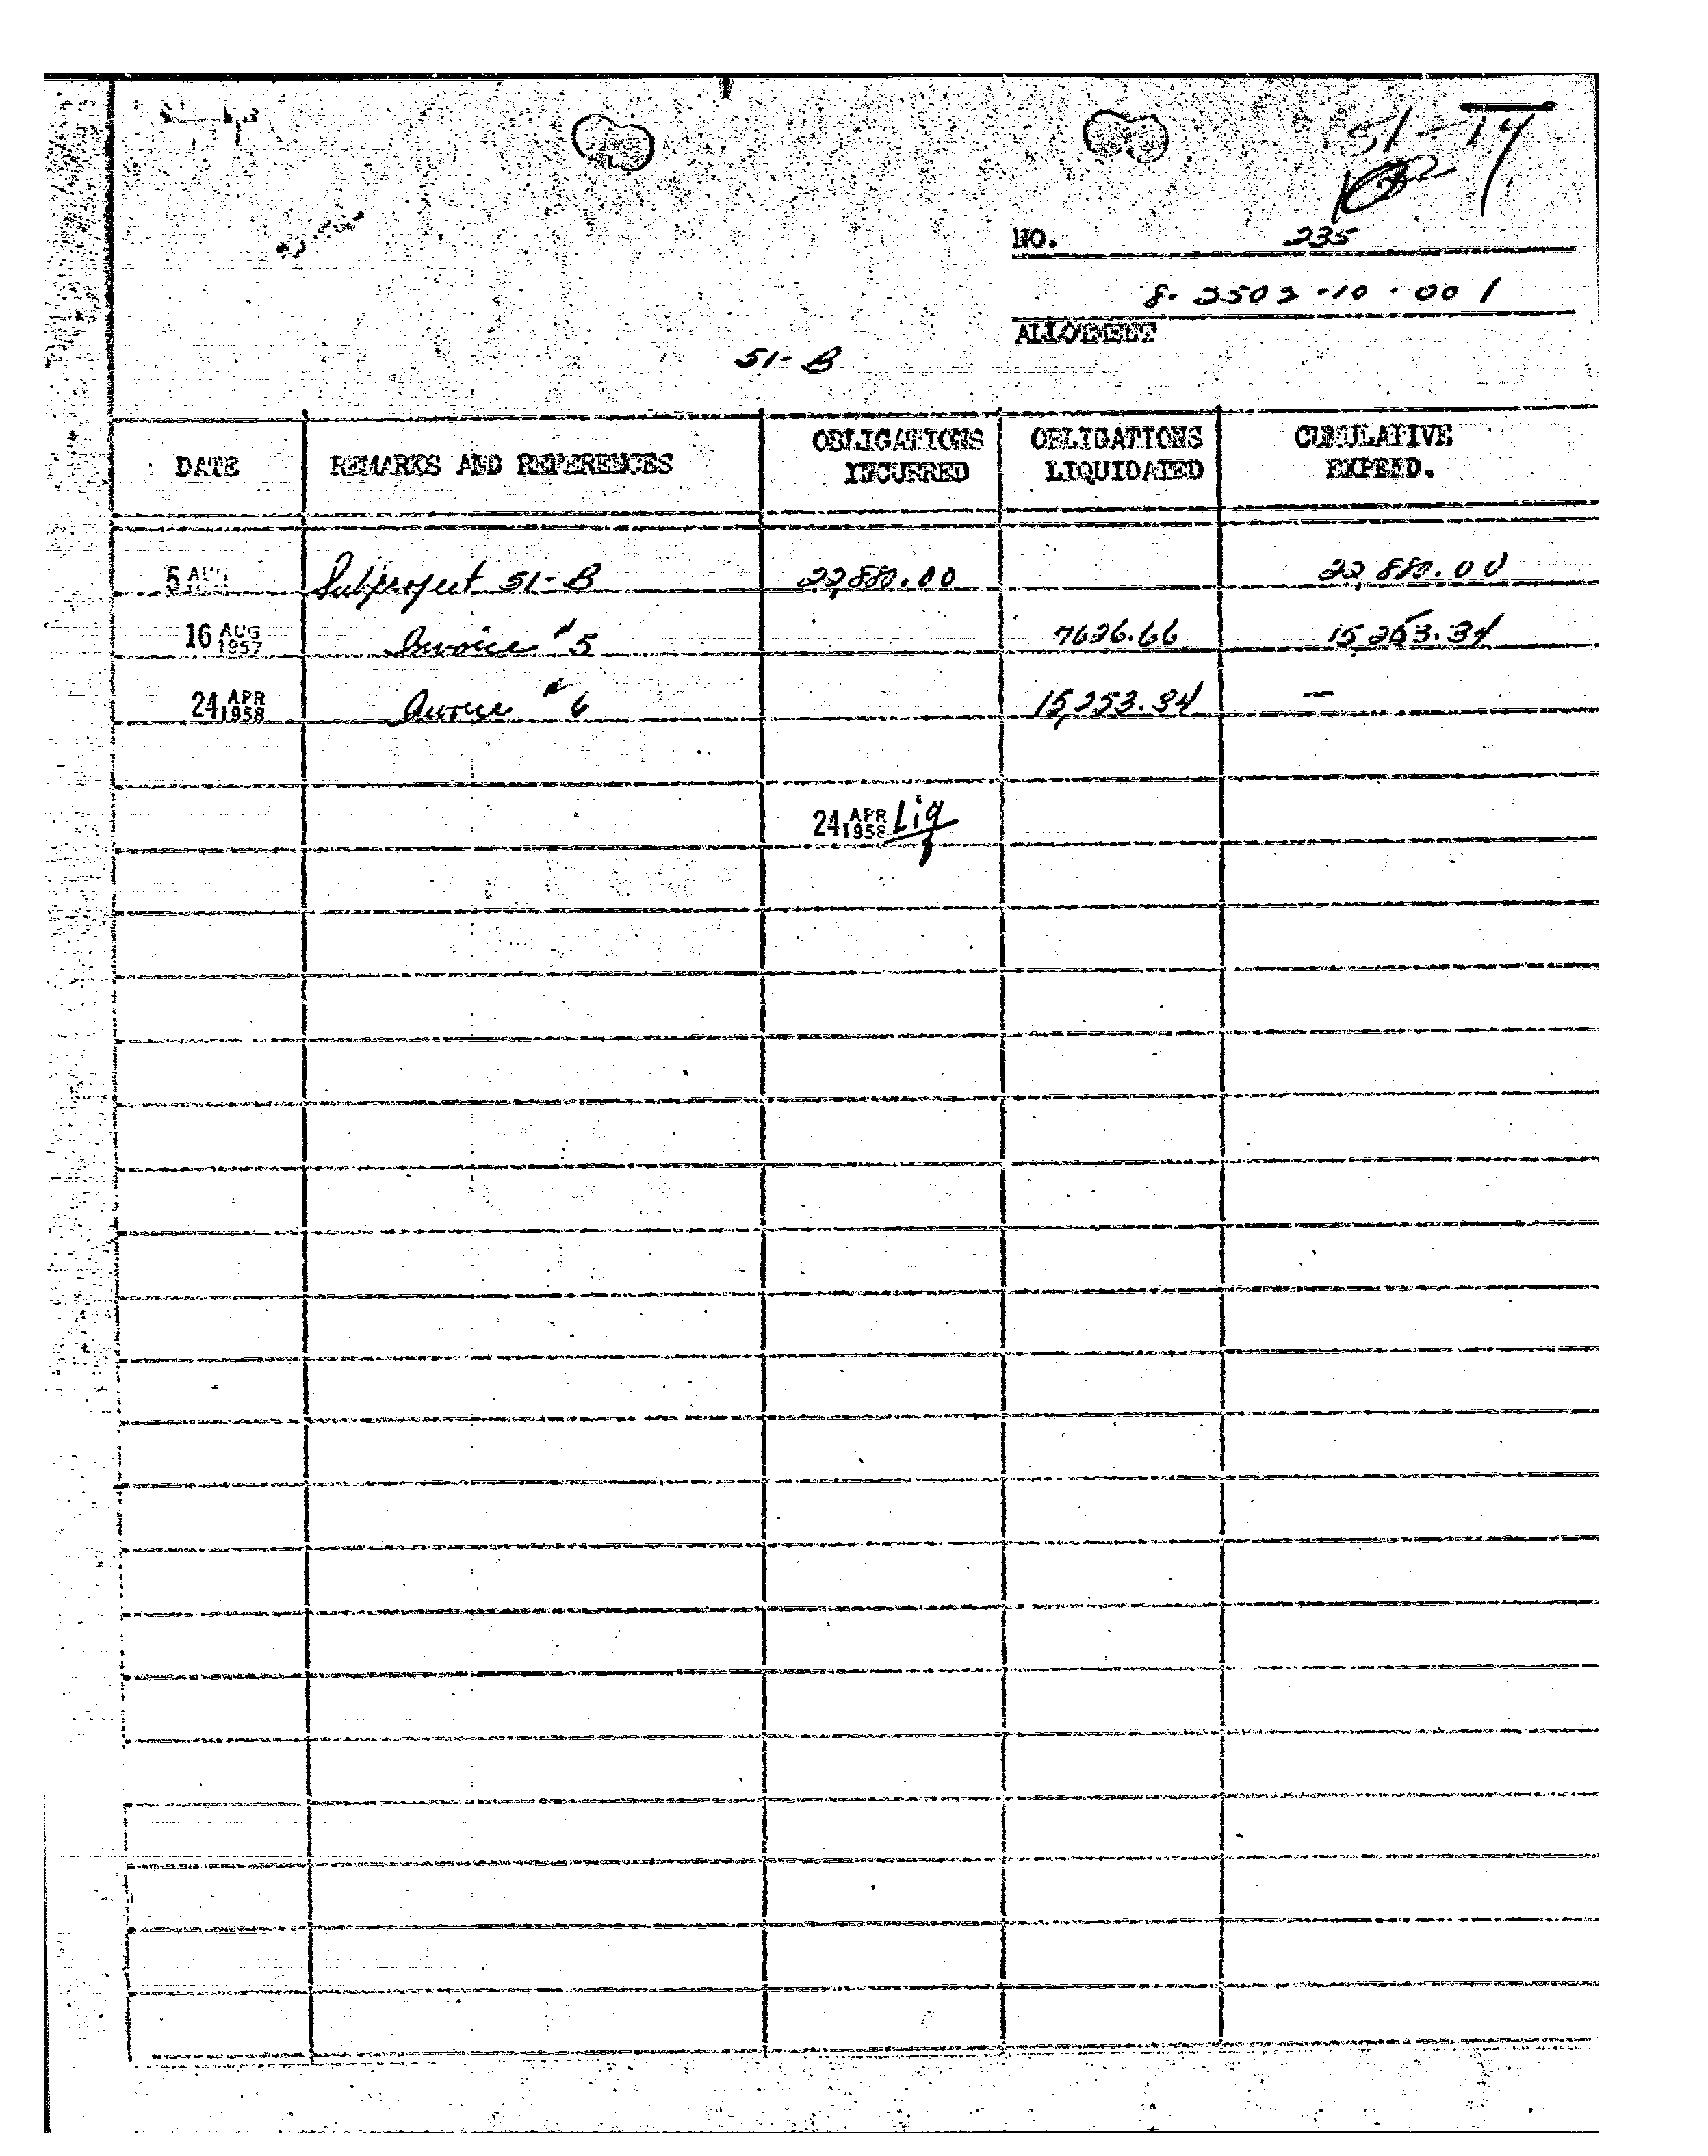 51-14
NO. 235
8-2502-10-001
ALLOTMENT
51-B
DATE REMARKS AND REFERENCES OBLIGATIONS INCURRED OBLIGATIONS LIQUIDATED CUMULATIVE EXPEND.
5 AUG Subproject 51-B 22,880.00 22,880.00
16 AUG 1957 Invoice #5 7626.66 15,253.34
24 APR 1958 Invoice #6 15,253.34 —
24 APR 1958 Liq